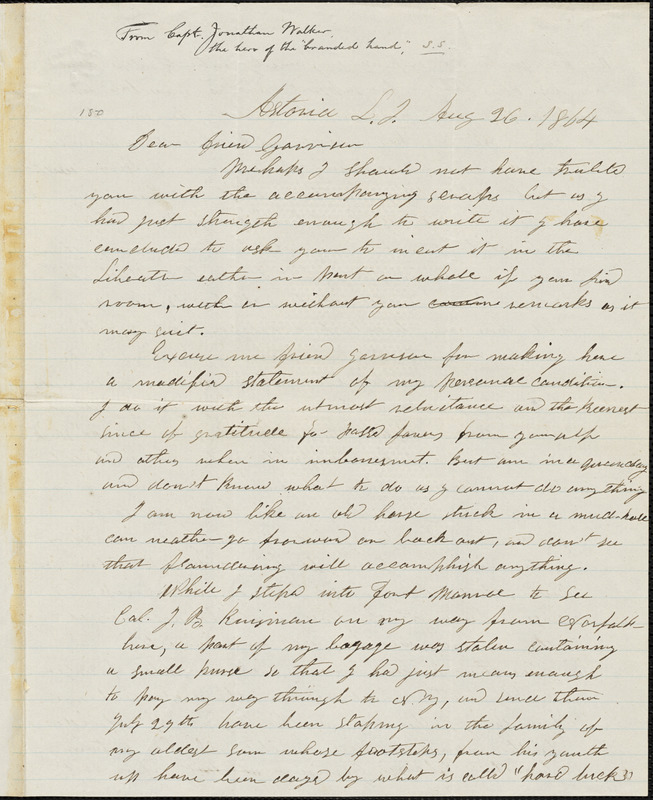 From Capt. Jonathan Walker,
the hero of the "branded hand," S.S.
Astoria L. I. Aug 26. 1864
Dear friend Garrison
Perhaps I should not have trubled
you with the accompanying scraps but as I
had just strength enough to write it I have
concluded to ask you to incert it in the
Liberator eather in part or whole if you find
room, with or without your remarks as it
may suit.
Excuse me friend Garrison for making here
a modified statement of my personal condition.
I do it with the utmost reluctance and the keenest
since of gratitude for passd favors from yourself
and others when in imbarresment. But am in a quandary
and don't know what to do as I cannot do anything
I am now like an old horse stuck in a mud-hole
can neather go forward or back out, and don't see
that floundering will accomplish anything.
While I stepd into Fort Monroe to see
Col. J. B. Kinsman on my way from Norfolk
here, a part of my bagage was stolen containing
a small purse so that I had just means enough
to pay my way through to N Y, and since then
July 29th have been stoping in the family of
my oldest son whose footsteps, from his youth
up have been doged by what is calld "hard luck"